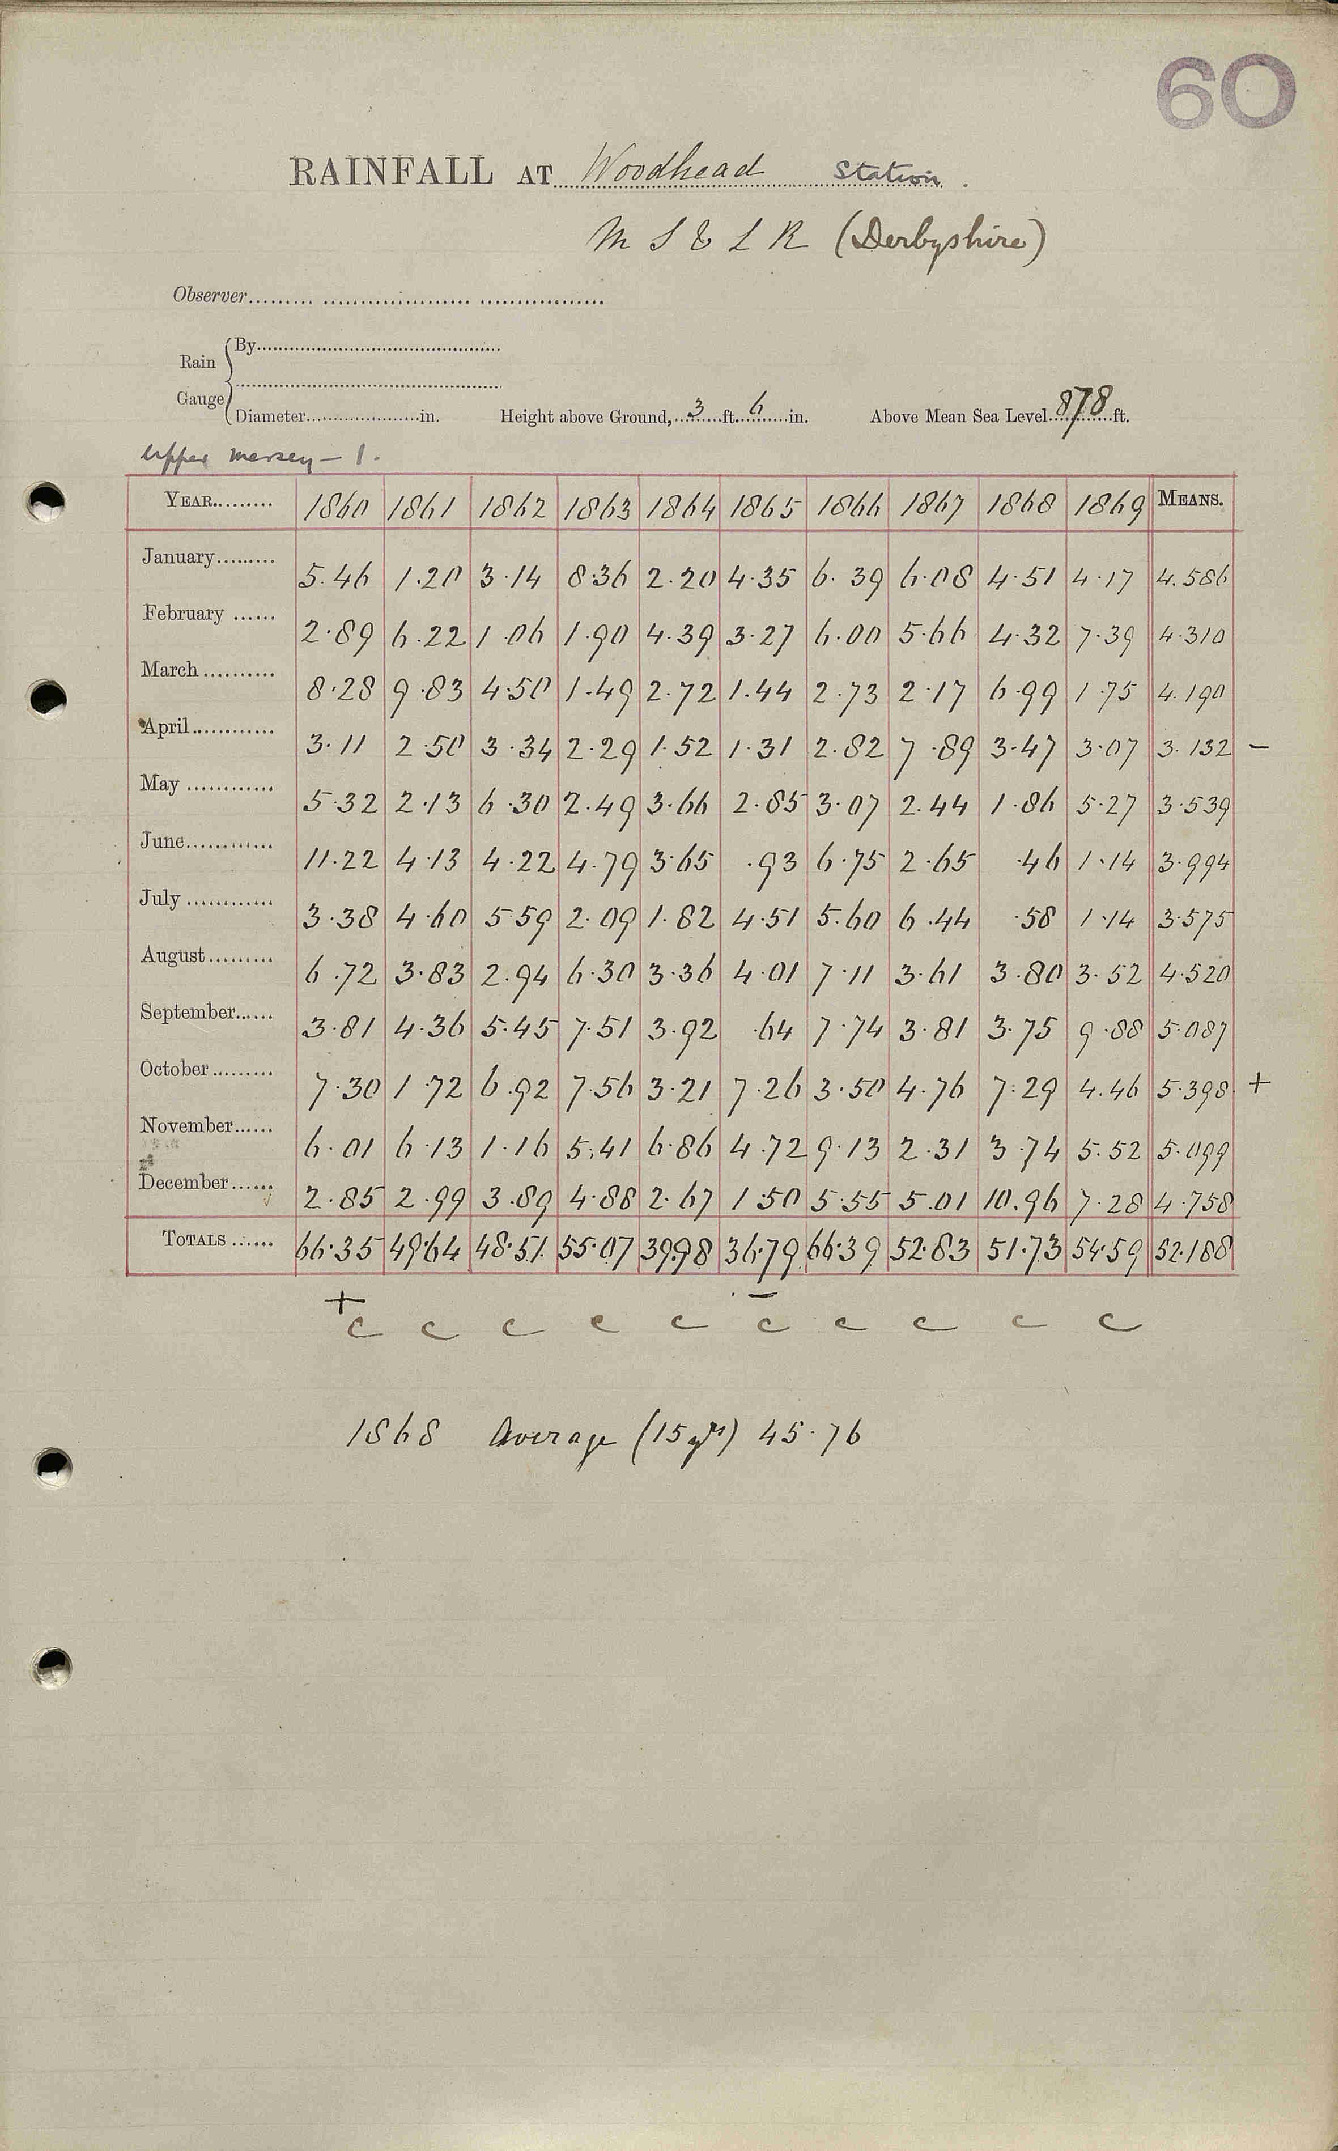 60
RAINFALL AT Woodhead Station.
M S & L R (Derbyshire)
Observer
Rain Gauge By
Diameter in. Height above Ground, 3 ft. 6 in. Above Mean Sea Level 878 ft.
Upper Mersey - 1.
YEAR 1860 1861 1862 1863 1864 1865 1866 1867 1868 1869 MEANS.
January 5.46 1.20 3.14 8.36 2.20 4.35 6.39 6.08 4.51 4.17 4.586
February 2.89 6.22 1.06 1.90 4.39 3.27 6.00 5.66 4.32 7.39 4.310
March 8.28 9.83 4.50 1.49 2.72 1.44 2.73 2.17 6.99 1.75 4.190
April 3.11 2.50 3.34 2.29 1.52 1.31 2.82 7.89 3.47 3.07 3.132 -
May 5.32 2.13 6.30 2.49 3.66 2.85 3.07 2.44 1.86 5.27 3.539
June 11.22 4.13 4.22 4.79 3.65 .93 6.75 2.65 .46 1.14 3.994
July 3.38 4.60 5.59 2.09 1.82 4.51 5.60 6.44 .58 1.14 3.575
August 6.72 3.83 2.94 6.30 3.36 4.01 7.11 3.61 3.80 3.52 4.520
September 3.81 4.36 5.45 7.51 3.92 .64 7.74 3.81 3.75 9.88 5.087
October 7.30 1.72 6.92 7.56 3.21 7.26 3.50 4.76 7.29 4.46 5.398 +
November 6.01 6.13 1.16 5.41 6.86 4.72 9.13 2.31 3.74 5.52 5.099
December 2.85 2.99 3.89 4.88 2.67 1.50 5.55 5.01 10.96 7.28 4.758
TOTALS 66.35 49.64 48.51 55.07 39.98 36.79 66.39 52.83 51.73 54.59 52.188
+ -
c c c c c c c c c c
1868 Average (15 yrs) 45.76